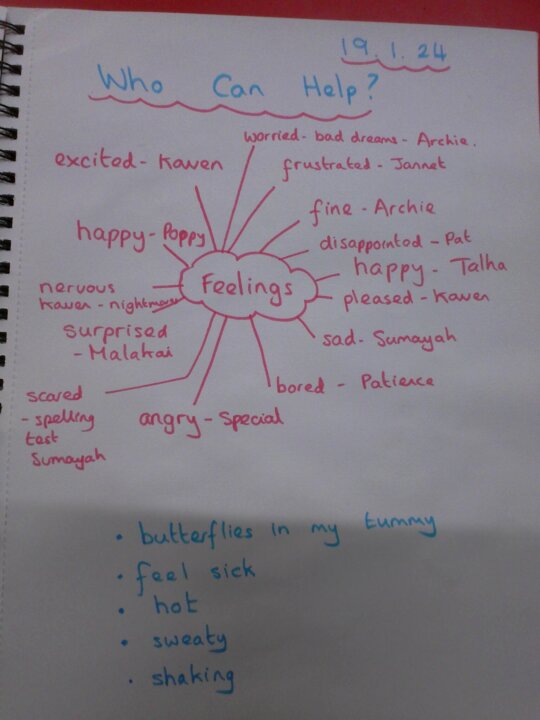 19.1.24
Who Can Help?
worried - bad dreams - Archie.
excited - Kaven
frustrated - Jannet
fine - Archie
happy - Poppy
disappointed - Pat
happy - Talha
Feelings
nervous
Kaven - nightmares
pleased - Kaven
surprised
- Malakai
sad - Sumayah
scared
- spelling
test
Sumayah
bored - Patience
angry - Special
• butterflies in my tummy
• feel sick
• hot
• sweaty
• shaking